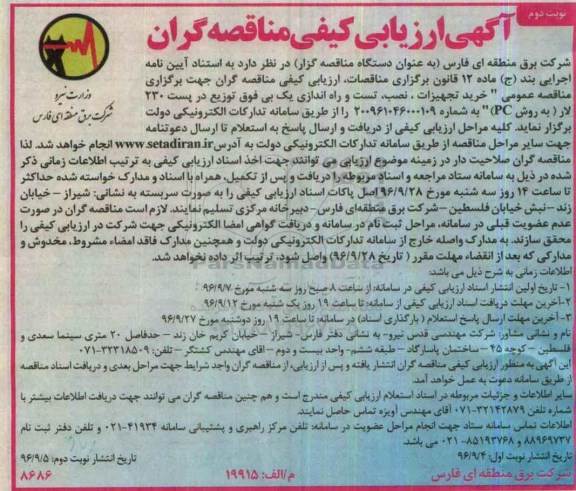 نوبت دوم
آگهی ارزیابی کیفی مناقصه گران
وزارت نیرو
شرکت برق منطقه ای فارس
شرکت برق منطقه ای فارس (به عنوان دستگاه مناقصه گزار) در نظر دارد به استناد آیین نامه
اجرایی بند (ج) ماده ۱۲ قانون برگزاری مناقصات، ارزیابی کیفی مناقصه گران جهت برگزاری
مناقصه عمومی " خرید تجهیزات ، نصب، تست و راه اندازی یک بی فوق توزیع در پست ۲۳۰
لار ( به روش PC)" به شماره ۲۰۰۹۶۱۰۴۶۰۰۰۱۰۹ را از طریق سامانه تدارکات الکترونیکی دولت
برگزار نماید. کلیه مراحل ارزیابی کیفی از دریافت و ارسال پاسخ به استعلام تا ارسال دعوتنامه
جهت سایر مراحل مناقصه از طریق سامانه تدارکات الکترونیکی دولت به آدرس www.setadiran.ir انجام خواهد شد. لذا
مناقصه گران صلاحیت دار در زمینه موضوع ارزیابی می توانند جهت اخذ اسناد ارزیابی کیفی به ترتیب اطلاعات زمانی ذکر
شده در ذیل به سامانه ستاد مراجعه و اسناد مربوطه را دریافت و پس از تکمیل، همراه با اسناد و مدارک خواسته شده حداکثر
تا ساعت ۱۴ روز سه شنبه مورخ ۹۶/۹/۲۸ اصل پاکات اسناد ارزیابی کیفی را به صورت سربسته به نشانی: شیراز – خیابان
زند –نبش خیابان فلسطین –شرکت برق منطقه‌ای فارس– دبیرخانه مرکزی تسلیم نمایند. لازم است مناقصه گران در صورت
عدم عضویت قبلی در سامانه، مراحل ثبت نام در سامانه و دریافت گواهی امضا الکترونیکی جهت شرکت در ارزیابی کیفی را
محقق سازند. به مدارک واصله خارج از سامانه تدارکات الکترونیکی دولت و همچنین مدارک فاقد امضاء مشروط، مخدوش و
مدارکی که بعد از انقضاء مهلت مقرر ( تاریخ ۹۶/۹/۲۸) واصل شود، ترتیب اثر داده نخواهد شد.
ParsNamadData
اطلاعات زمانی به شرح ذیل می باشد:
۱- تاریخ اولین انتشار اسناد ارزیابی کیفی در سامانه: از ساعت ۸ صبح روز سه شنبه مورخ ۹۶/۹/۷
۲-آخرین مهلت دریافت اسناد ارزیابی کیفی از سامانه: تا ساعت ۱۹ روز یک شنبه مورخ ۹۶/۹/۱۲
۳-آخرین مهلت ارسال پاسخ استعلام ( بارگذاری اسناد) در سامانه: تا ساعت ۱۹ روز دوشنبه مورخ ۹۶/۹/۲۷
نام و نشانی مشاور: شرکت مهندسی قدس نیرو– به نشانی دفتر فارس– شیراز – خیابان کریم خان زند – حدفاصل ۲۰ متری سینما سعدی و
فلسطین – کوچه ۴۵ – ساختمان پاسارگاد – طبقه ششم– واحد بیست و دوم – آقای مهندس کشتگر – تلفن: ۳۲۳۱۸۵۰۹-۰۷۱
این آگهی به منظور ارزیابی کیفی مناقصه گران انتشار یافته و پس از ارزیابی، از مناقصه گران واجد شرایط جهت مراحل بعدی و دریافت اسناد مناقصه
از طریق سامانه دعوت به عمل خواهد آمد.
سایر اطلاعات و جزئیات مربوطه در اسناد استعلام ارزیابی کیفی مندرج است و هم چنین مناقصه گران می توانند جهت دریافت اطلاعات بیشتر با
شماره تلفن ۳۲۱۴۲۸۷۹-۰۷۱ آقای مهندس آویزه تماس حاصل نمایند.
اطلاعات تماس سامانه ستاد جهت انجام مراحل عضویت در سامانه: تلفن مرکز راهبری و پشتیبانی سامانه ۴۱۹۳۴-۰۲۱ و تلفن دفتر ثبت نام
۸۸۹۶۹۷۳۷ و ۸۵۱۹۳۷۶۸-۰۲۱ می باشد.
تاریخ انتشار نوبت اول: ۹۶/۹/۴
تاریخ انتشار نوبت دوم: ۹۶/۹/۵
شرکت برق منطقه ای فارس
م/الف: ۱۹۹۱۵
۸۶۸۶